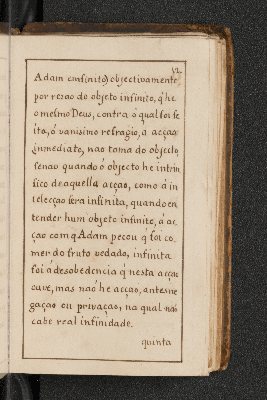 VI.
Adam (infinito) objectivamente,
por rezão do objeto infinito, q̃ he
o mesmo Deus, contra o qual foi fe
ita, ó vanissimo refugio, a acção
inmediate, nao toma do objecto,
senao quando ó objecto he intrin
sico deaquella acção, como á in
telecção sera infinita, quando en
tender hum objeto infinito, á ac
ção com q Adam pecou q̃ foi co
mer do fruto vedado, infinita
foi á desobedencia q̃ nesta acçao
ouve, mas nao he acção, antes ne
gaçao ou privaçao, na qual não
cabe real infinidade.
quinta